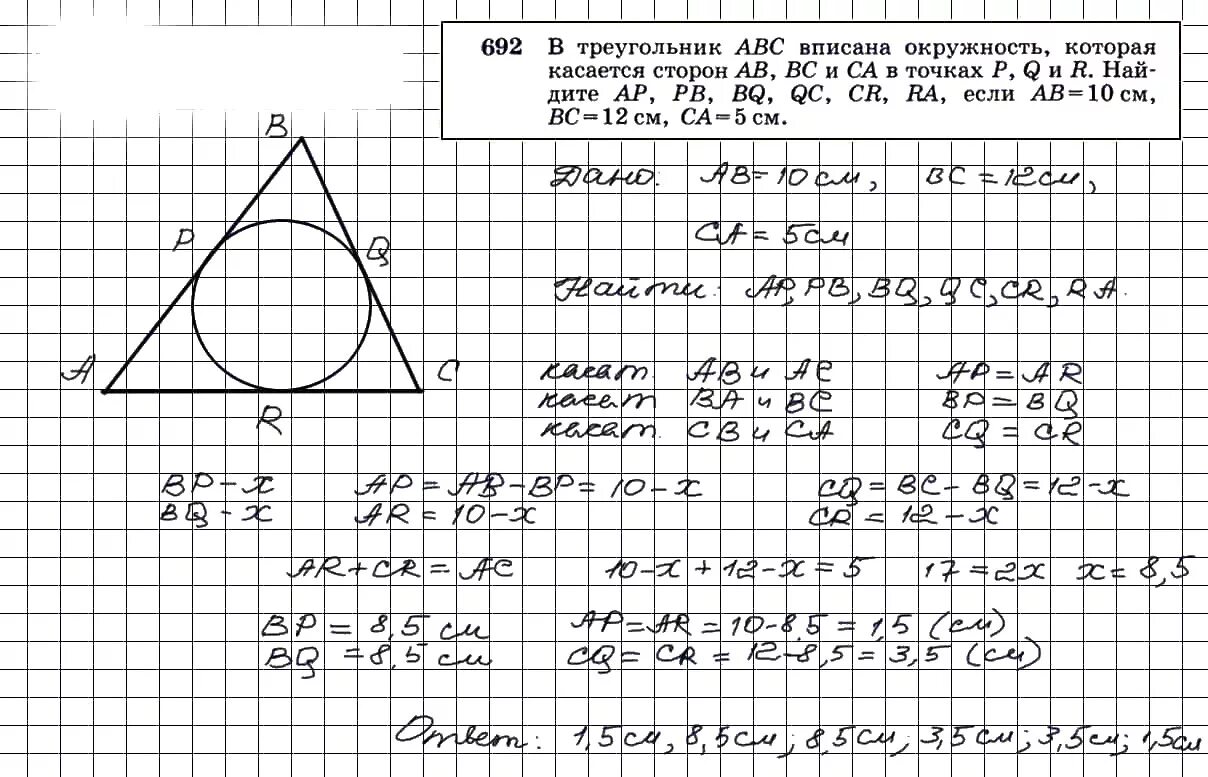 692 В треугольник ABC вписана окружность, которая
касается сторон AB, BC и CA в точках P, Q и R. Най-
дите AP, PB, BQ, QC, CR, RA, если AB=10 см,
BC=12 см, CA=5 см.
B
P
Q
A
C
R
Дано: AB=10 см, BC=12 см,
CA=5 см
Найти: AP, PB, BQ, QC, CR, RA.
касат. AB и AC AP=AR
касат BA и BC BP=BQ
касат. CB и CA CQ=CR
BP-x AP=AB-BP=10-x CQ=BC-BQ=12-x
BQ-x AR=10-x CR=12-x
AR+CR=AC 10-x+12-x=5 17=2x x=8,5
BP=8,5 см AP=AR=10-8,5=1,5 (см)
BQ=8,5 см CQ=CR=12-8,5=3,5 (см)
Ответ: 1,5см, 8,5см; 8,5см; 3,5см; 3,5см; 1,5см